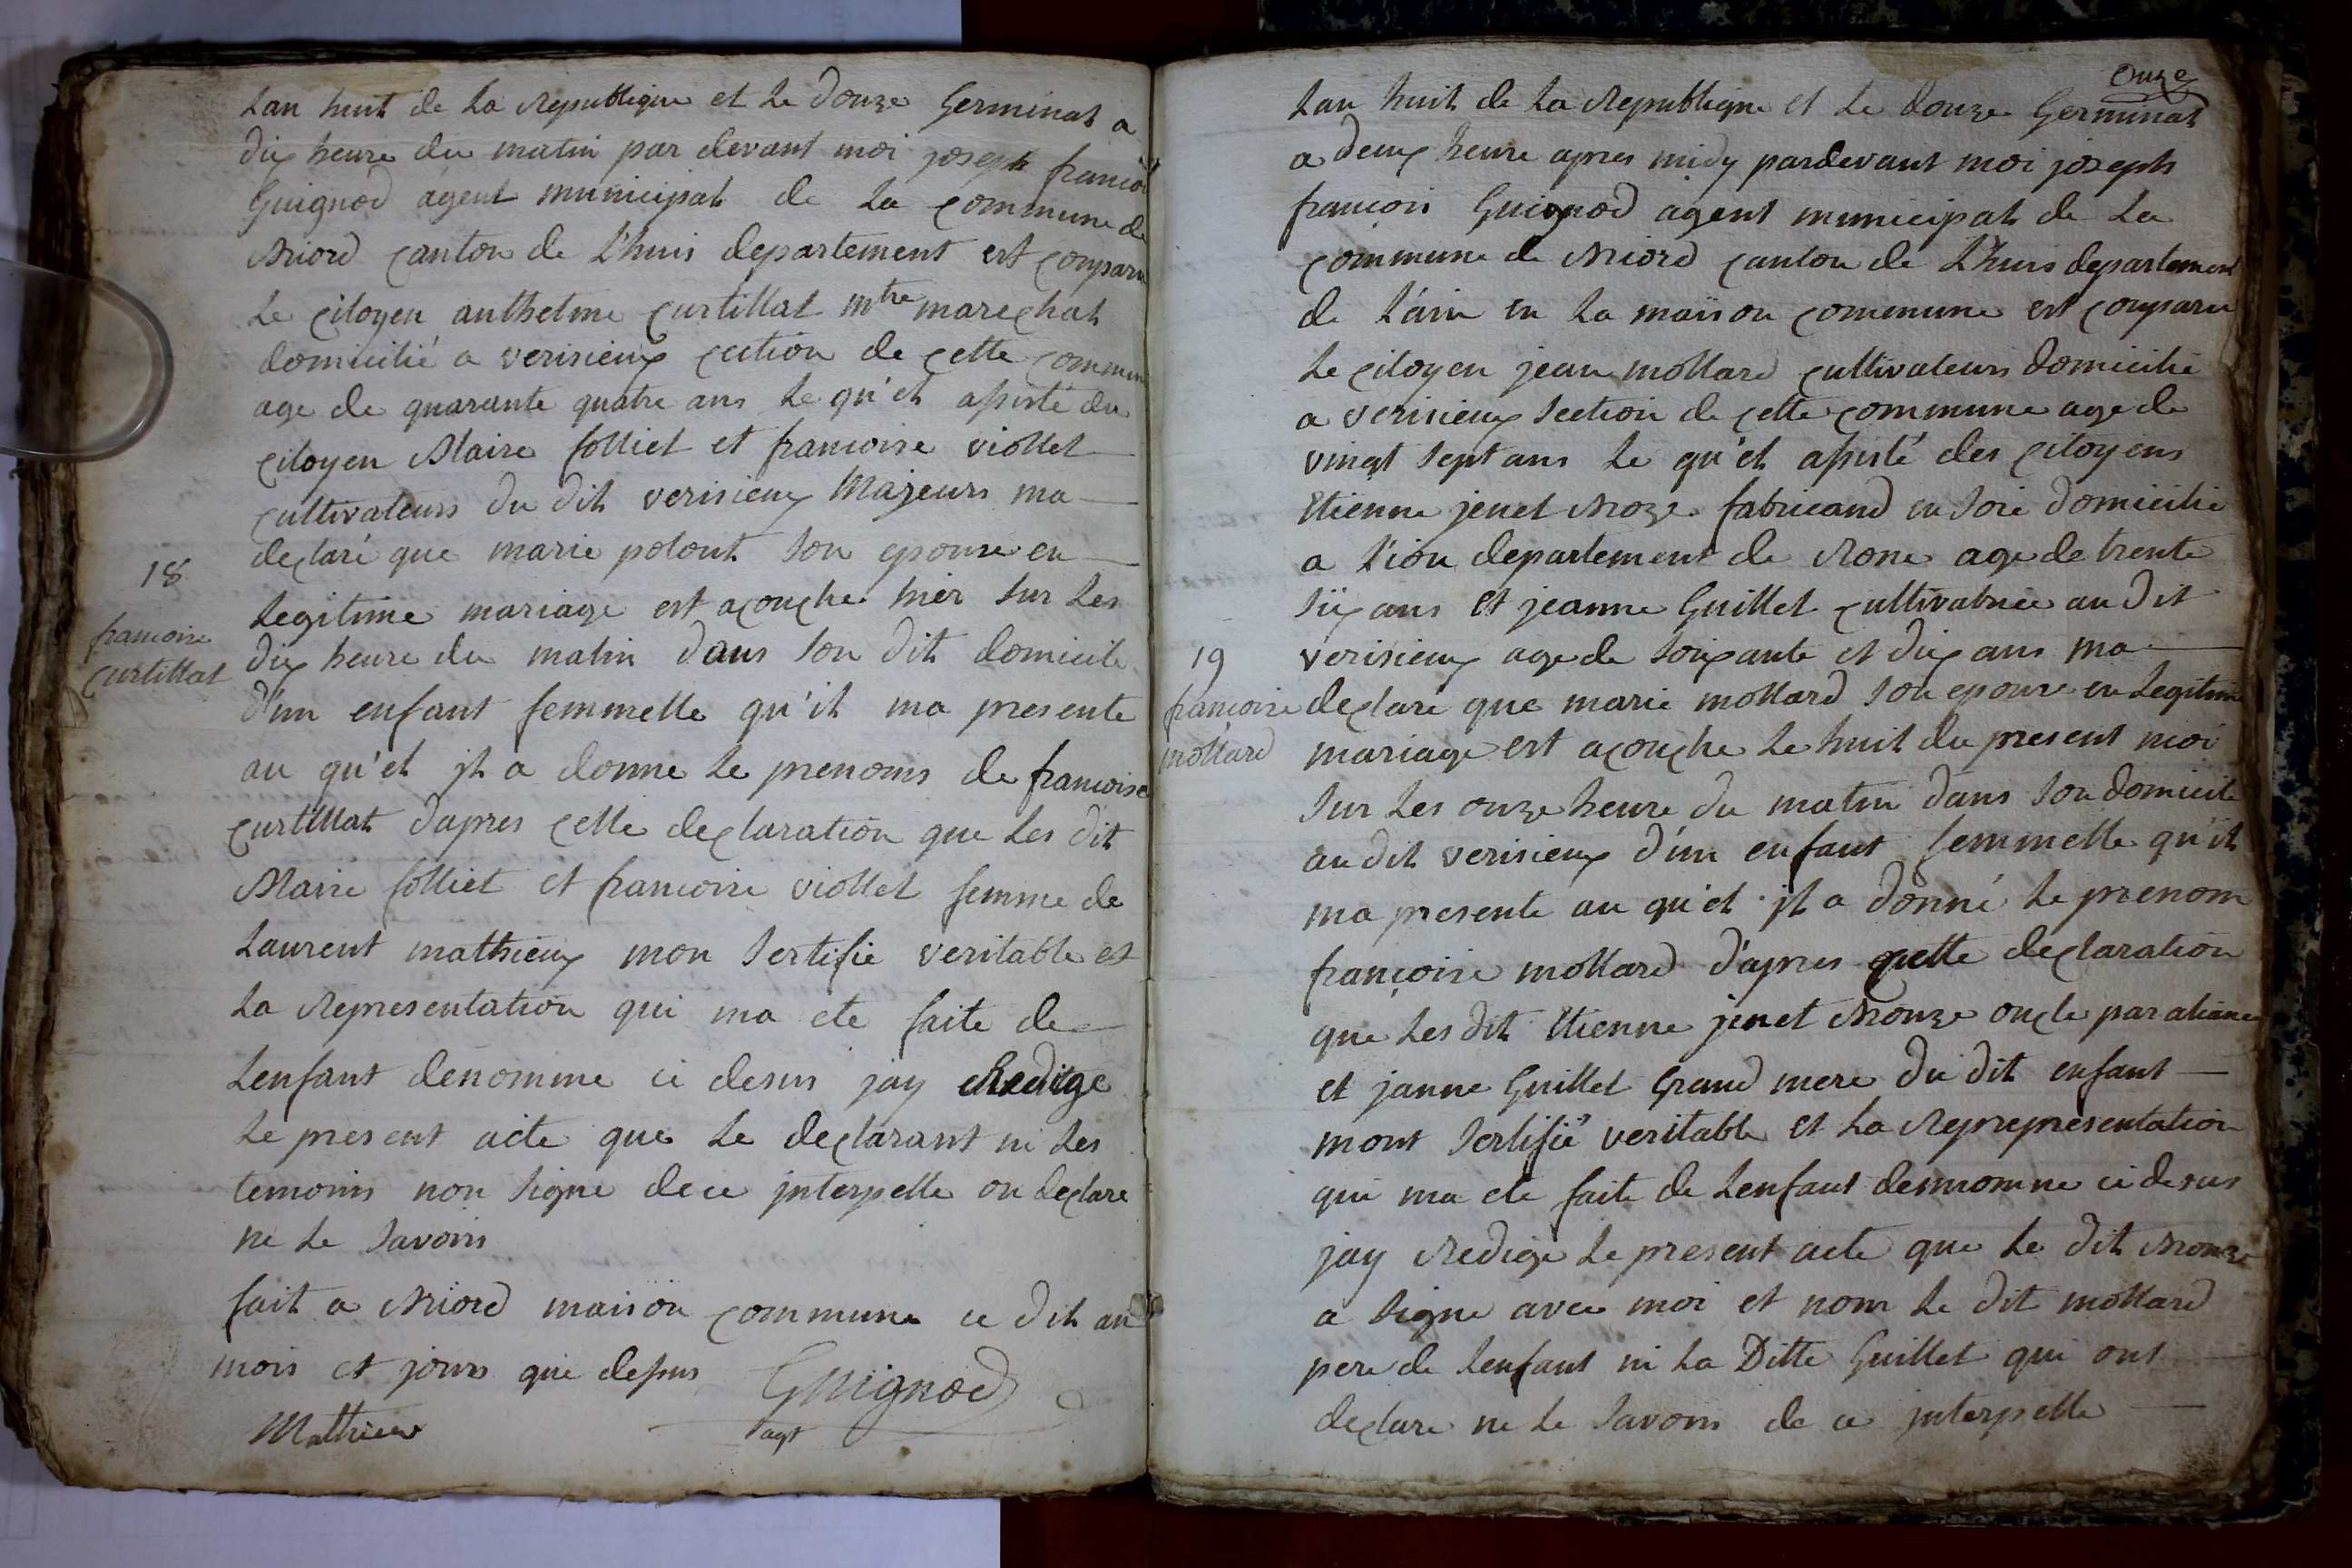 Lan huit de La Republique et Le douze Germinal a
dix heure du matin par devant moi joseph francois
Guignod agent municipal de La commune de
Briord canton de L'huis departement est conparu
Le citoyen anthelme Curtillat mtre marechal
domicilié a verisieux cection de cette commune
age de quarante quatre ans Le qu'el assisté du
citoyen Blaire Colliet et francoise viollet
cultivateurs du dit verisieux Majeurs ma
declaré que marie polout Son epouse en
Legitime mariage est acouche hier Sur Les
dix heure du matin dans Son dit domicile
d'un enfant femmelle qu'il ma presente
au qu'el jl a donne Le prenoms de francoise
Curtillat d'apres cette declaration que Les dit
Blaire Colliet et francoise viollet femme de
Laurent mathieux mon Sertifie veritable et
La Representation qui ma ete faite de
Lenfant denomme ci desus jay Redige
Le present acte que Le declarant ni Les
temoins non Signe de ce jnterpelle on declare
ne Le Savoirs
fait a Briord maison commune ce dit an
mois et jours que dessus Guignod
Mathieu agt
18
francoise
Curtillat
onze
Lan huit de La Republique et Le douze Germinal
a deux heure apres midy pardevant moi joseph
françois Guignod agent municipal de La
commune de Briord canton de L'huis departement
de L'ain en La maison commune est conparu
Le citoyen jean mollard cultivateurs domicilie
a verisieux Section de cette commune age de
vingt Sept ans Le qu'el assisté des citoyens
Etienne jenet Broze fabricand en Soie domicilie
a L'ion departement de Rone age de trente
Six ans et jeanne Guillet cultivatrice au dit
verisieux age de Soixante et dix ans ma
declaré que marie mollard Son epouse en Legitime
mariage est acouche Le huit du present moi
Sur Les onze heure du matin dans Son domicile
au dit verisieux d'un enfant femmelle qu'il
ma presente au qu'el jl a donné Le prenom
françoise mollard d'apres cette declaration
que Les dit Etienne jenet Bronze oncle par aliance
et janne Guillet Grand mere du dit enfant
mont Sertifié veritable et La Reprepresentation
qui ma ete faite de Lenfant dennomme ci desus
jay Redige Le present acte que Le dit Bronze
a Signe avec moi et nom Le dit mollard
pere de Lenfant ni La Ditte Guillet qui ont
declare ne Le Savoirs de ce jnterpelle
19
françoise
mollard